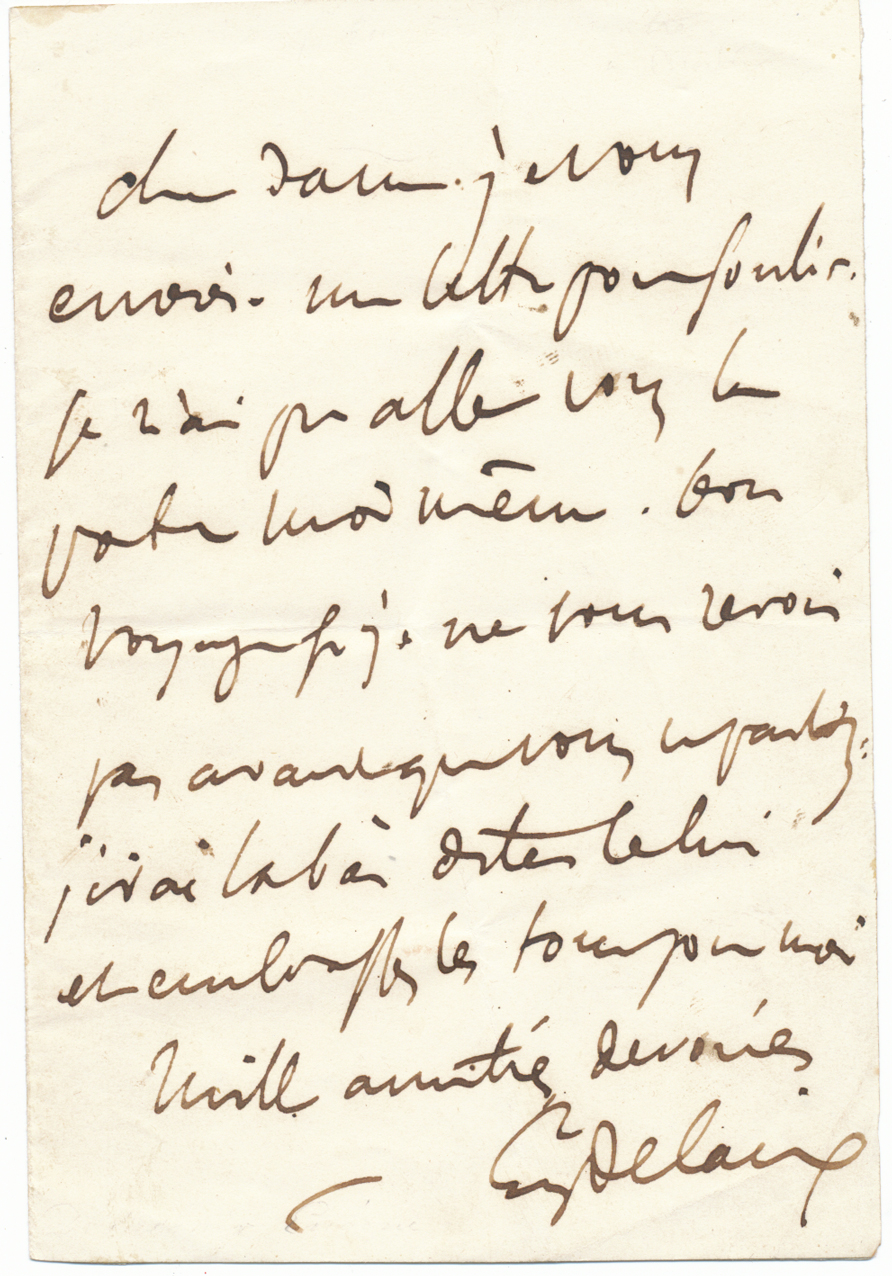 chere dame. je vous
envoie. une lettre pour
je n'ai pu aller vous la
porter moi même. bon
voyage si je ne vous revois
pas avant que vous ne partiez.
j'irai la bas dites le lui
et embrassez les tous pour moi
Mille amitiés devouées
Eug Delacroix